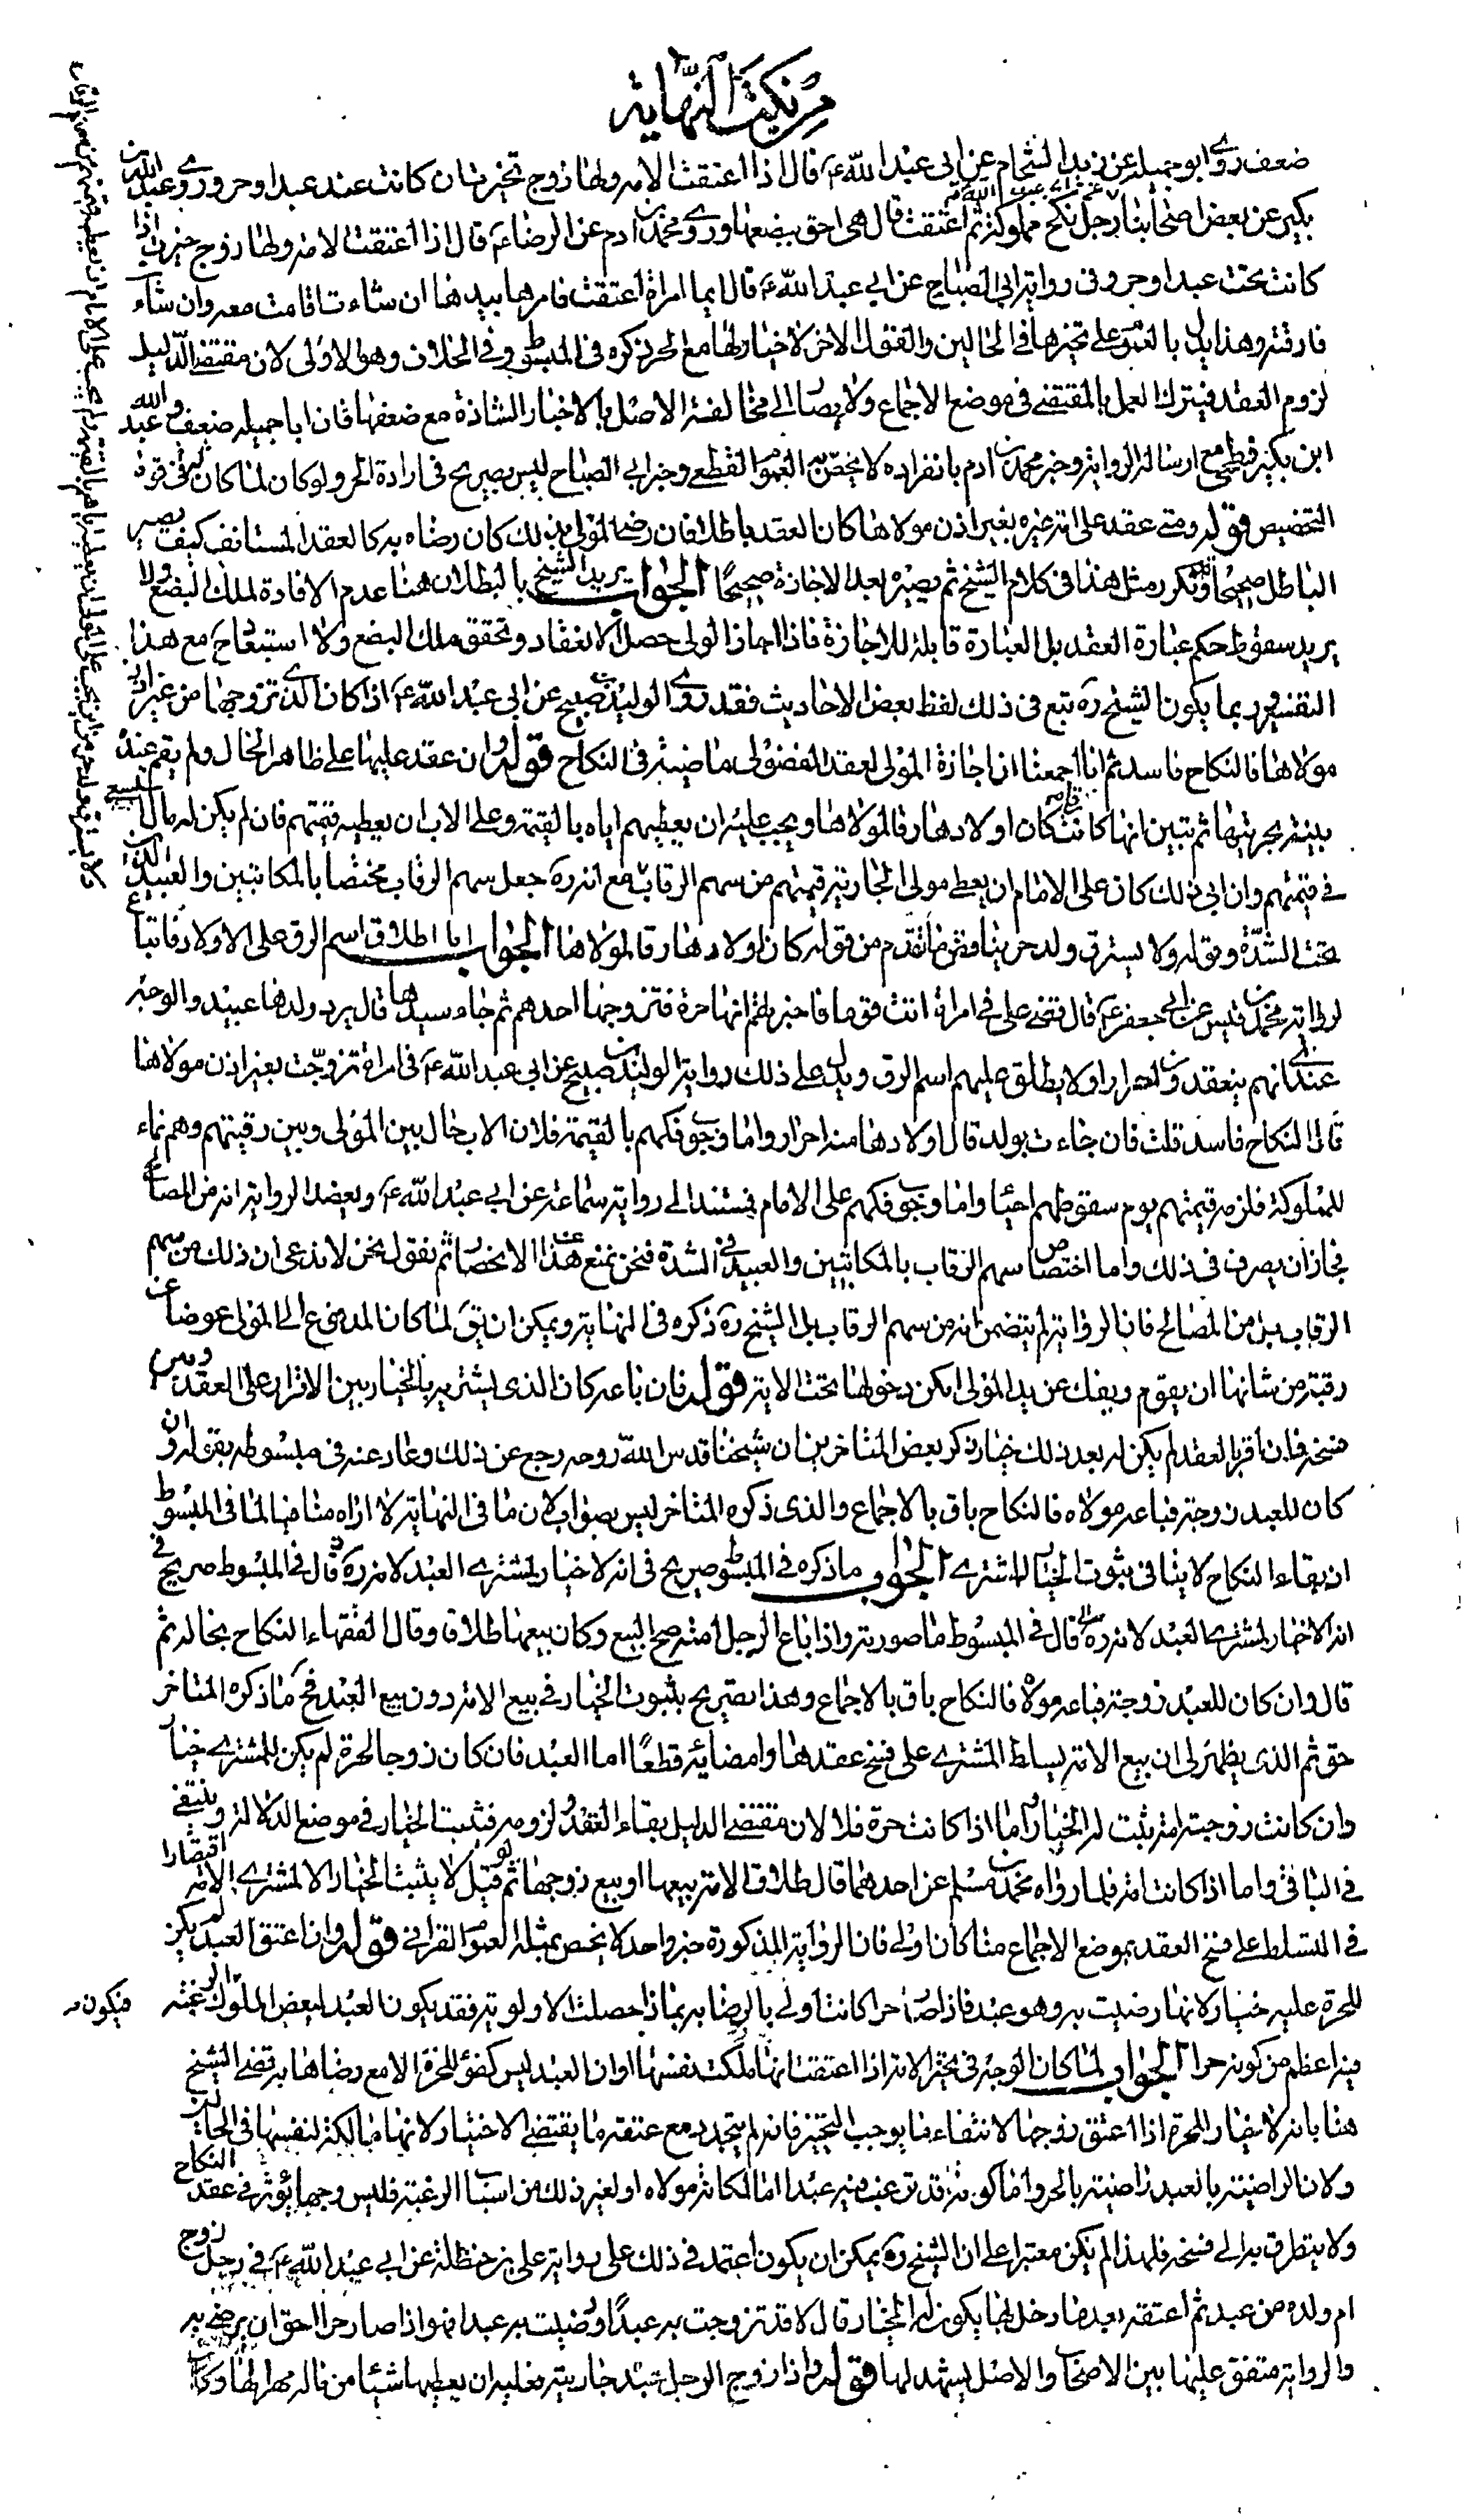 من نكت النهاية
ضعف روى ابو جميلة عن زيد الشحام عن ابي عبد الله ع قال اذا اعتقت الامة ولها زوج تخيرت ان كانت عند عبد او حر وروى عبد الله بن
بكير عن بعض اصحابنا عن ابي عبد الله ع رجل نكح مملوكة ثم اعتقت قال هي احق ببضعها وروى محمد بن ادم عن الرضا ع قال اذا اعتقت الامة ولها زوج خيرت اذا
كانت تحت عبد او حر وفي رواية ابي الصباح عن ابي عبد الله ع قال ايما امراة اعتقت فامرها بيدها ان شاءت اقامت معه وان شاء
فارقته وهذا يدل بالعموم على تخيرها في الحالين والقول الاخر لا خيار لها مع الحر ذكره في المبسوط وفي الخلاف وهو الاولى لان مقتضى الدليل
لزوم العقد فيترك العمل بالمقتضى في موضع الاجماع ولا يصار الى مخالفة الاصل بالاخبار الشاذة مع ضعفها فان ابا جميلة ضعيف وعبد الله
ابن بكير فطحي مع ارساله الرواية وخبر محمد بن ادم بانفراده لا يخص به العموم القطعي وخبر ابي الصباح ليس بصريح في ارادة الحر ولو كان لما كان له قوة
التخصيص قوله ومتى عقد على امة غيره بغير اذن مولاها كان العقد باطلا فان رضي المولى بذلك كان رضاه به كالعقد المستانف كيف يصير
الباطل صحيحا وقد تكرر مثل هذا في كلام الشيخ ثم يصيره بعد الاجازة صحيحا الجواب يريد الشيخ بالبطلان هنا عدم الافادة لملك البضع ولا
يريد سقوط حكم عبارة العقد بل العبارة قابلة للاجازة فاذا اجاز الولي حصل الانعقاد وتحقق ملك البضع ولا استبعاد ح مع هذا
التفسير وربما يكون الشيخ ره تبع في ذلك لفظ بعض الاحاديث فقد روى الوليد بن صبيح عن ابي عبد الله ع اذا كان الذي تزوجها من غير اذن
مولاها فالنكاح فاسد ثم انا اجمعنا ان اجازة المولى لعقد الفضولي ماضية في النكاح قوله وان عقد عليها على ظاهر الحال ولم يقم عنده
بينة بحريتها ثم تبين انها كانت رقا كان اولادها رقا لمولاها ويجب عليه ان يعطيهم اياه بالقيمة وعلى الاب ان يعطيه قيمتهم فان لم يكن له مال استسعى
في قيمتهم وان ابى ذلك كان على الامام ان يعطي مولى الجارية قيمتهم من سهم الرقاب مع انه ره جعل سهم الرقاب مختصا بالمكاتبين والعبيد اذا كانوا
تحت الشدة وقوله ولا يسترق ولد حر ينافي ما تقدم من قوله كان اولادها رقا لمولاها الجواب اما اطلاق اسم الرق على الاولاد فاتباع
لرواية محمد بن قيس عن ابي جعفر ع قال قضى علي في امراة اتت قوما فاخبرتهم انها حرة فتزوجها احدهم ثم جاء سيدها قال يرد ولدها عبيد والوجه
عندي انهم ينعقدون احرارا ولا يطلق عليهم اسم الرق ويدل على ذلك رواية الوليد بن صبيح عن ابي عبد الله ع في امراة تزوجت بغير اذن مولاها
قال النكاح فاسد قلت فان جاءت بولد قال اولادها منه احرار واما وجوب فكهم بالقيمة فلان الاب حال بين المولى وبين رقيتهم وهم نماء
للمملوكة فلزمه قيمتهم يوم سقوطهم احياء واما وجوب فكهم على الامام فيستند الى رواية سماعة عن ابي عبد الله ع ويعضد الرواية انه من المصالح
فجاز ان يصرف في ذلك واما اختصاص سهم الرقاب بالمكاتبين والعبيد في الشدة فنحن نمنع هذا الاختصاص ثم نقول نحن لا ندعي ان ذلك من سهم
الرقاب بل من المصالح فان الرواية لم يتضمن انه من سهم الرقاب بل الشيخ ره ذكره في النهاية ويمكن ان يق لما كان المدفوع الى المولى عوضا عن
رقبة من شانها ان يقوم ويفك عن يد المولى امكن دخولها تحت الاية قوله فان باعه كان الذي يشتريه بالخيار بين الاقرار على العقد وبين
فسخه فان اقر بالعقد لم يكن له بعد ذلك خيار ذكر بعض المتاخرين ان شيخنا قدس الله روحه رجع عن ذلك وعاد عنه في مبسوطه بقوله وان
كان للعبد زوجة فباعه مولاه فالنكاح باق بالاجماع والذي ذكره المتاخر ليس بصواب لان ما في النهاية لا اراه منافيا لما في المبسوط
ان بقاء النكاح لا ينافي ثبوت الخيار للمشتري الجواب ما ذكره في المبسوط صريح في انه لا خيار لمشتري العبد لانه ره قال في المبسوط صريح في
انه لا خيار لمشتري العبد لانه ره قال في المبسوط ما صورته واذا باع الرجل امته صح البيع وكان بيعها طلاقا وقال الفقهاء النكاح بحاله ثم
قال وان كان للعبد زوجة فباعه مولاه فالنكاح باق بالاجماع وهذا تصريح بثبوت الخيار في بيع الامة دون بيع العبد فح ما ذكره المتاخر
حق ثم الذي يظهر لي ان بيع الامة يسلط المشتري على فسخ عقدها وامضائه قطعا اما العبد فان كان زوجا لحرة لم يكن للمشتري خيار
وان كانت زوجته امة يثبت له الخيار اما اذا كانت حرة فلا لان مقتضى الدليل بقاء العقد ولزومه فتثبت الخيار في موضع الدلالة وينتفى
في الباقي واما اذا كانت امة فلما رواه محمد بن مسلم عن احدهما قال طلاق الامة بيعها او بيع زوجها ثم لو قيل لا يثبت الخيار الا لمشتري الامة اقتصارا
في التسلط على فسخ العقد بموضع الاجماع منا كان اولى فان الرواية المذكورة خبر واحد لا يخص بمثله العموم القراني قوله وان اعتق العبد لم يكن
للحرة عليه خيار لانها رضيت به وهو عبد فاذا صار حرا كانت اولى بالرضا به بماذا حصلت الاولوية فقد يكون العبد لبعض الملوك فيكون الرغبة
فيه اعظم من كونه حرا الجواب لما كان الوجه في تخير الامة اذا اعتقت انها ملكت نفسها او ان العبد ليس كفؤ للحرة الا مع رضاها به قضى الشيخ
هنا بانه لا خيار للحرة اذا اعتق زوجها لانتفاء ما يوجب التخير فانه لم يتجدد مع عتقه ما يقتضي الاختيار لانها مالكة لنفسها في الحالين
ولان الراضية بالعبد راضية بالحر واما كونه قد ترغب فيه عبدا اما لمكانة مولاه او لغير ذلك من اسباب الرغبة فليس وجها يؤثر في عقد النكاح
ولا يتطرق به الى فسخه فلهذا لم يكن معتبرا على ان الشيخ ره يمكن ان يكون اعتمد في ذلك على رواية علي بن حنظلة عن ابي عبد الله ع في رجل زوج
ام ولده من عبد ثم اعتقه بعد ما دخل بها يكون لها الخيار قال لا قد تزوجت به عبدا ورضيت به عبدا فهو اذا صار حرا احق ان يرضى به
والرواية متفق عليها بين الاصحاب والاصل يشهد لها قوله واذا زوج الرجل عبده جاريته فعليه ان يعطيها شيئا من ماله مهرا لها وكان